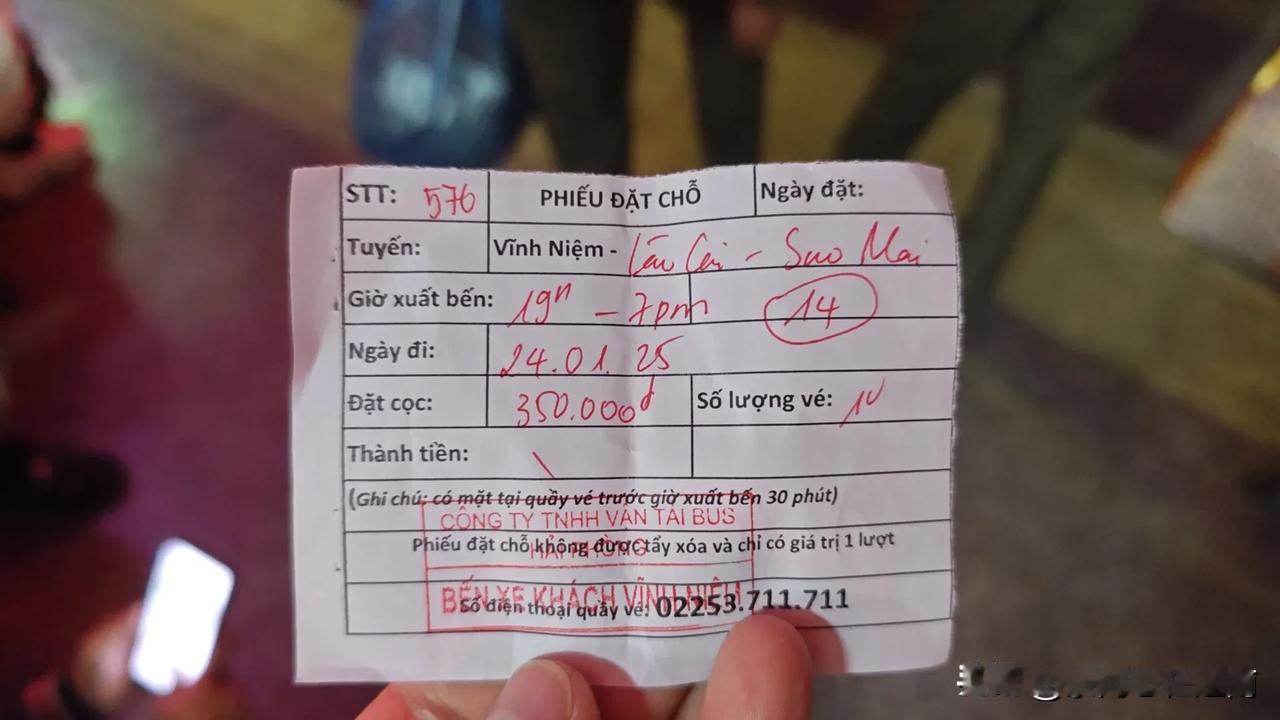 STT: 576 PHIẾU ĐẶT CHỖ Ngày đặt:
Tuyến: Vĩnh Niệm - Lào Cai - Sao Mai
Giờ xuất bến: 19h - 7pm 14
Ngày đi: 24.01.25
Đặt cọc: 350.000đ Số lượng vé: 1v
Thành tiền: \
(Ghi chú: có mặt tại quầy vé trước giờ xuất bến 30 phút)
CÔNG TY TNHH VẬN TẢI BUS
HẢI PHÒNG
Phiếu đặt chỗ không được tẩy xóa và chỉ có giá trị 1 lượt
BẾN XE KHÁCH VĨNH NIỆM
Số điện thoại quầy vé: 02253.711.711